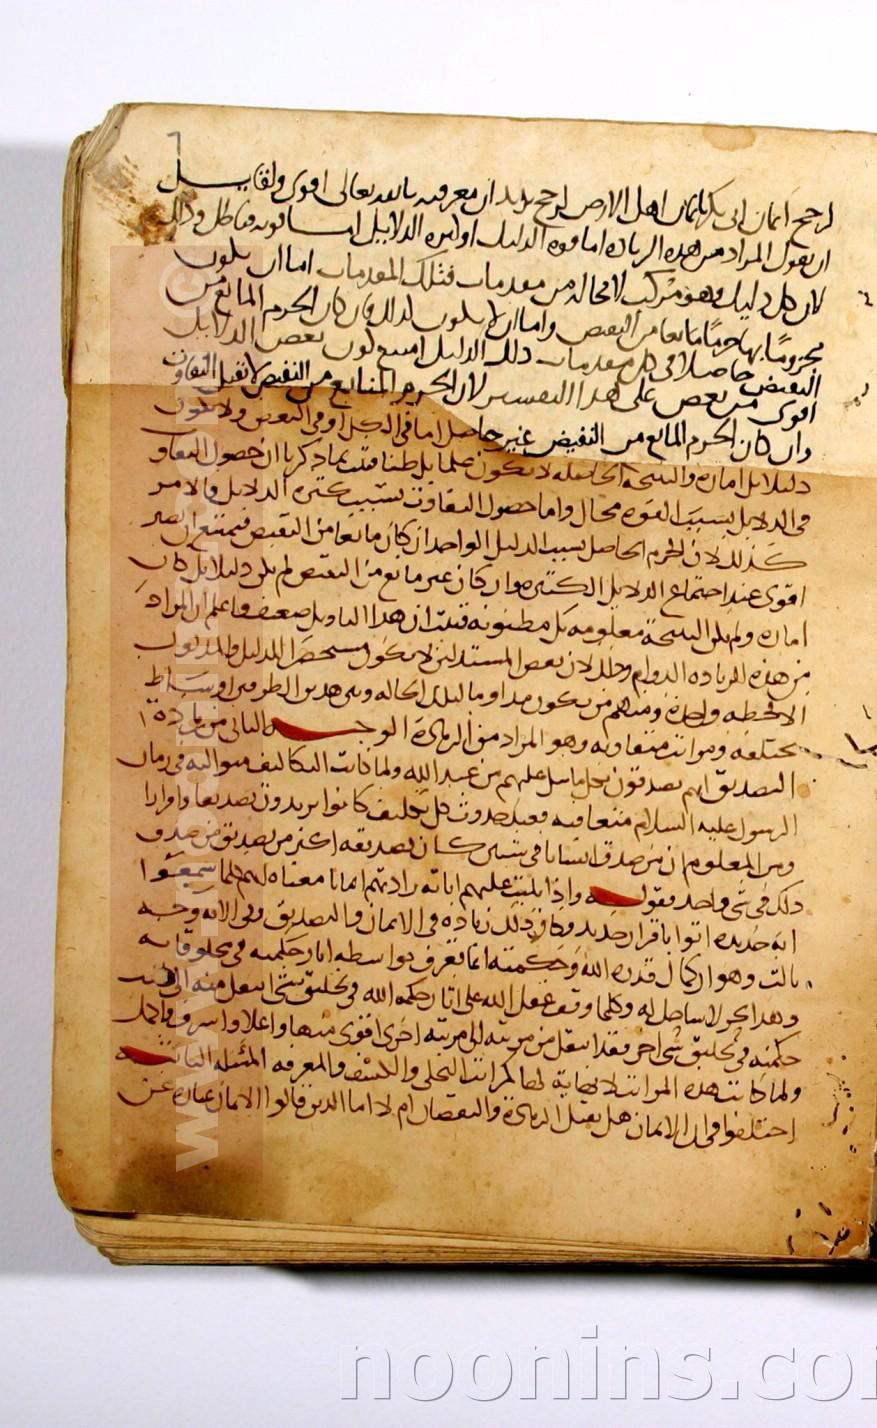 لرجح ايمان ابى بكر بايمان اهل الارض لرجح يريد ان معرفته بالله تعالى اقوى ولقايل
ان يقول المراد من هذه الزياده اما قوه الدليل او كثره الدلايل اما قوته فباطل وذلك
لان كل دليل وهو مركب لا محاله من مقدمات فتلك المقدمات اما ان يكون
مجزوما بها جزما مانعا من النقيض واما ان لا يكون كذلك فان كان الجزم المانع من
النقيض حاصلا فى كل مقدمات ذلك الدليل امتنع كون بعض الدلايل
اقوى من بعض على هذا التفسير لان الجزم المانع من النقيض لا يقبل التفاوت
وان كان الجزم المانع من النقيض غير حاصل اما فى الكل او فى البعض ولا يكون
دليلا بل اماره والنتيجه الحاصله لا تكون علما بل ظنا فثبت بما ذكرنا ان حصول التفاو
فى الدلايل بسبب القوه محال واما حصول التفاوت بسبب كثره الدلايل فالامر
كذلك لان الجزم الحاصل بسبب الدليل الواحد ان كان مانعا من النقيض فيمتنع ان يصير
اقوى عند اجتماع الدلايل الكثيره وان كان غير مانع من النقيض لم يكن دليلا بل كان
اماره ولم تكن النتيجة معلومه بل مظنونه فثبت ان هذا التاويل ضعيف واعلم ان المراد
من هذه الزياده الدوام وذلك لان بعض المستدلين لا يكون مستحضرا للدليل والمدلول
الا لحظه واحدة ومنهم من يكون مداوما لتلك الحاله وبين هذين الطرفين اوساط
مختلفه ومراتب متفاوته وهو المراد من الزيادة الوجه الثانى من زياده
التصديق انهم يصدقون بكل ما يتلى عليهم من عند الله ولما كانت التكاليف متواليه فى زمان
الرسول عليه السلام متعاقبه فعند حدوث كل تكليف كانوا يزيدون تصديقا واقرارا
ومن المعلوم ان من صدق انسانا فى شيئين كان تصديقه اكثر من تصديق من صدق
ذلك فى شى واحد فقوله واذا تليت عليهم اياته زادتهم ايمانا معناه انهم كلما سمعوا
ايه جديده اتوا باقرار جديد وكان ذلك زياده فى الايمان والتصديق وفى الايه وجه
ثالث وهو ان كمال قدره الله وحكمته انما تعرف بواسطه اثار حكمته فى مخلوقاته
وهذا بحر لا ساحل له وكلما وقف عقل الله على اثار حكمه الله فى تخليق شى انتقل منه الى
حكمته فى تخليق شى اخر فقد انتقل من مرتبه الى مرتبه اخرى اقوى منها واعلا واشرف واكمل
ولما كانت هذه المراتب لا نهاية لها المراتب التجلى والكشف والمعرفه المسئله الثانيه
اختلفوا فى ان الايمان هل يقبل الزيادة والنقصان ام لا اما الذين قالوا الايمان عبارة عن
noonins.com